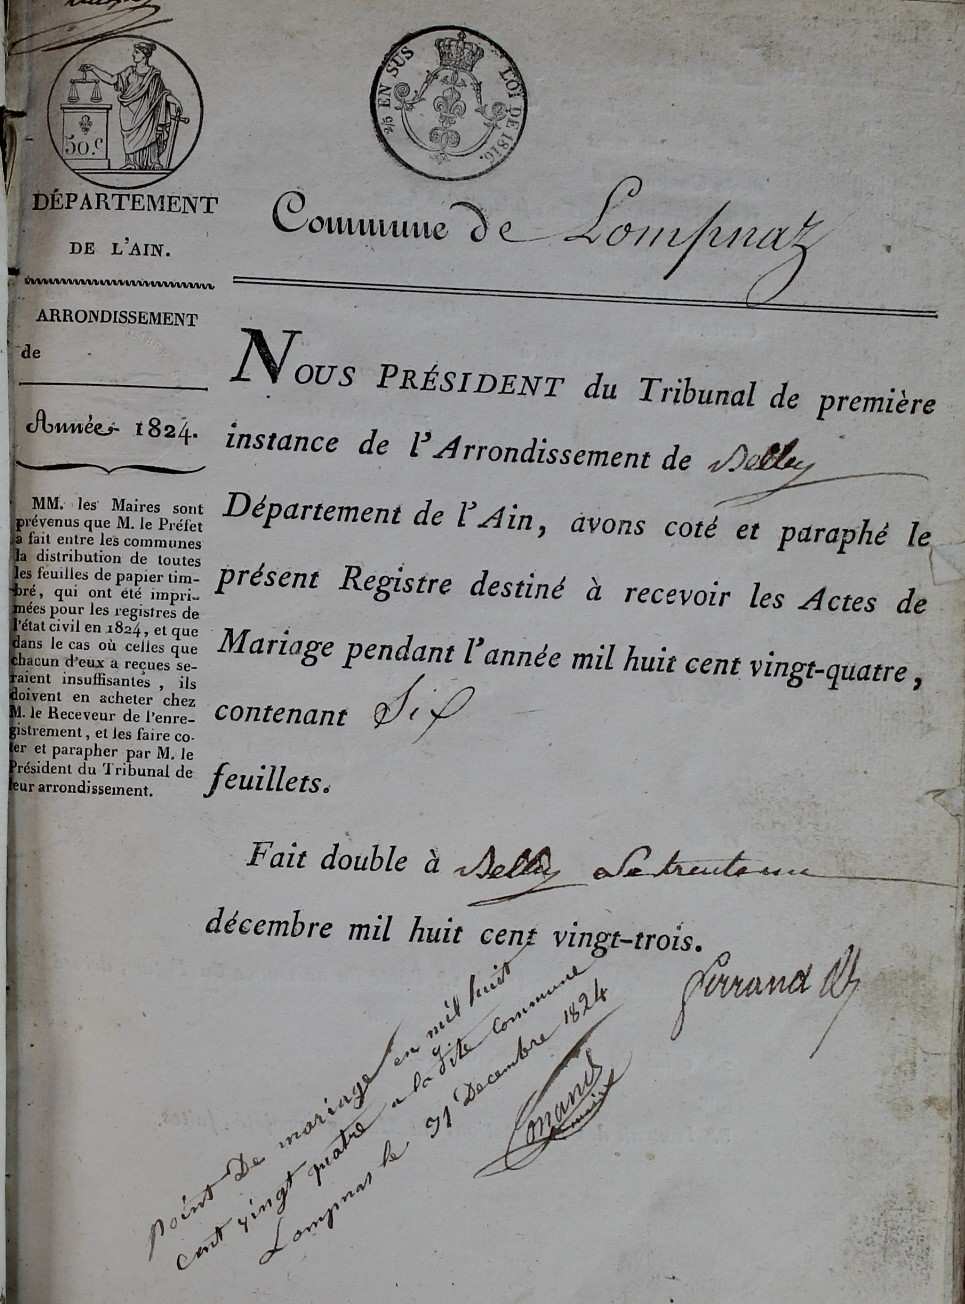 50.c
2/5 EN SUS
LOI DE 1816.
DÉPARTEMENT
DE L'AIN.
ARRONDISSEMENT
de
Année 1824.
MM. les Maires sont
prévenus que M. le Préfet
a fait entre les communes
la distribution de toutes
les feuilles de papier tim-
bré, qui ont été impri-
mées pour les registres de
l'état civil en 1824, et que
dans le cas où celles que
chacun d'eux a reçues se-
raient insuffisantes, ils
doivent en acheter chez
M. le Receveur de l'enre-
gistrement, et les faire co-
ter et parapher par M. le
Président du Tribunal de
leur arrondissement.
Commune de Lompnaz
NOUS PRÉSIDENT du Tribunal de première
instance de l'Arrondissement de Belley
Département de l'Ain, avons coté et paraphé le
présent Registre destiné à recevoir les Actes de
Mariage pendant l'année mil huit cent vingt-quatre,
contenant Six
feuillets.
Fait double à Belley Le trente un
décembre mil huit cent vingt-trois.
Ferrand
point De mariage en mil huit
cent vingt quatre a la dite Commune
Lompnas le 31 Decembre 1824
maire